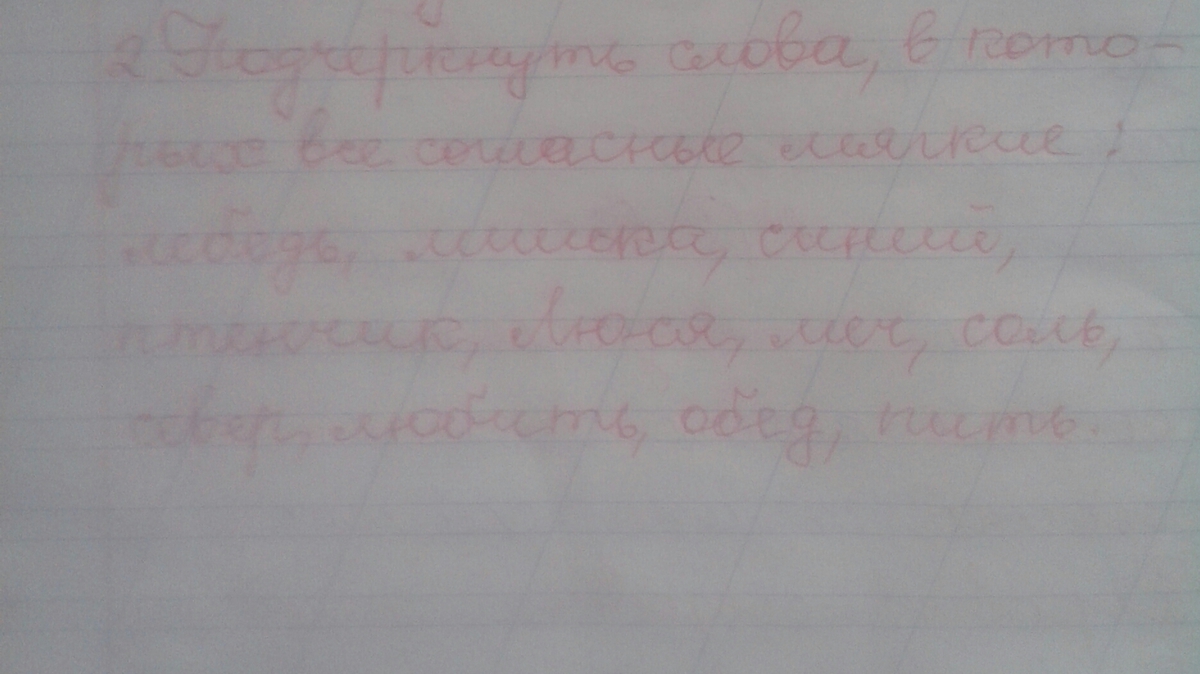 2 Подчеркнуть слова, в кото-
рых все согласные мягкие:
лебедь, мишка, синий,
птенчик, Люся, меч, соль,
север, любить, обед, пить.